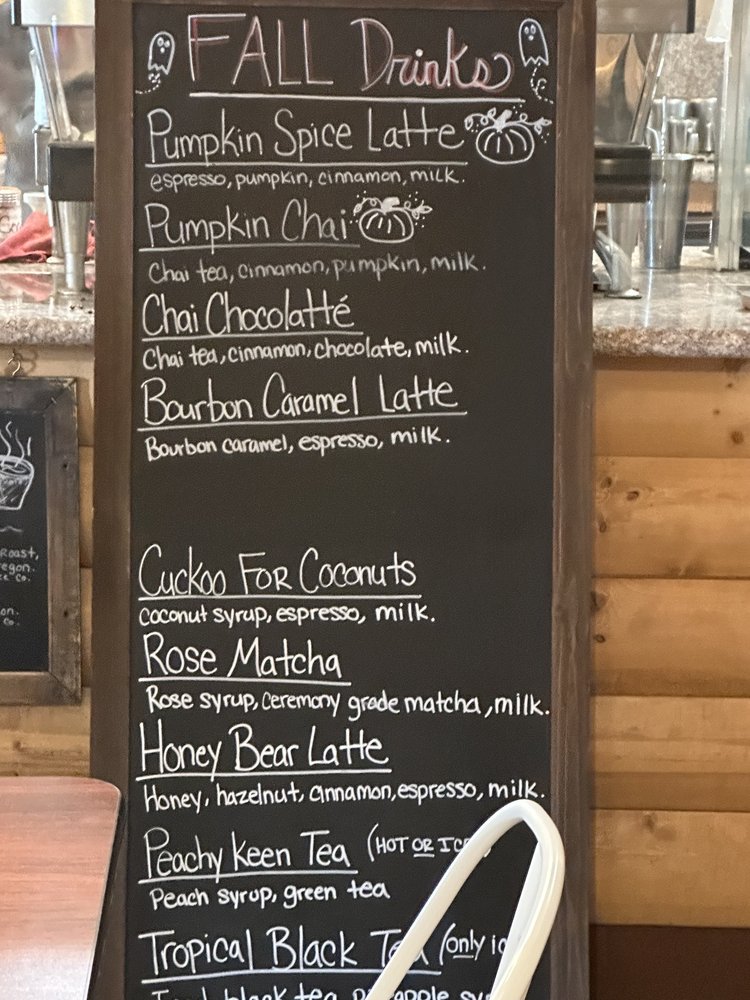 FALL Drinks
Pumpkin Spice Latte
espresso, pumpkin, cinnamon, milk.
Pumpkin Chai
Chai tea, cinnamon, pumpkin, milk.
Chai Chocolatté
Chai tea, cinnamon, chocolate, milk.
Bourbon Caramel Latte
Bourbon caramel, espresso, milk.
Cuckoo For Coconuts
coconut syrup, espresso, milk.
Rose Matcha
Rose syrup, ceremony grade matcha, milk.
Honey Bear Latte
Honey, hazelnut, cinnamon, espresso, milk.
Peachy Keen Tea (HOT OR
Peach syrup, green tea
Tropical Black Tea (only
black tea,
Roast,